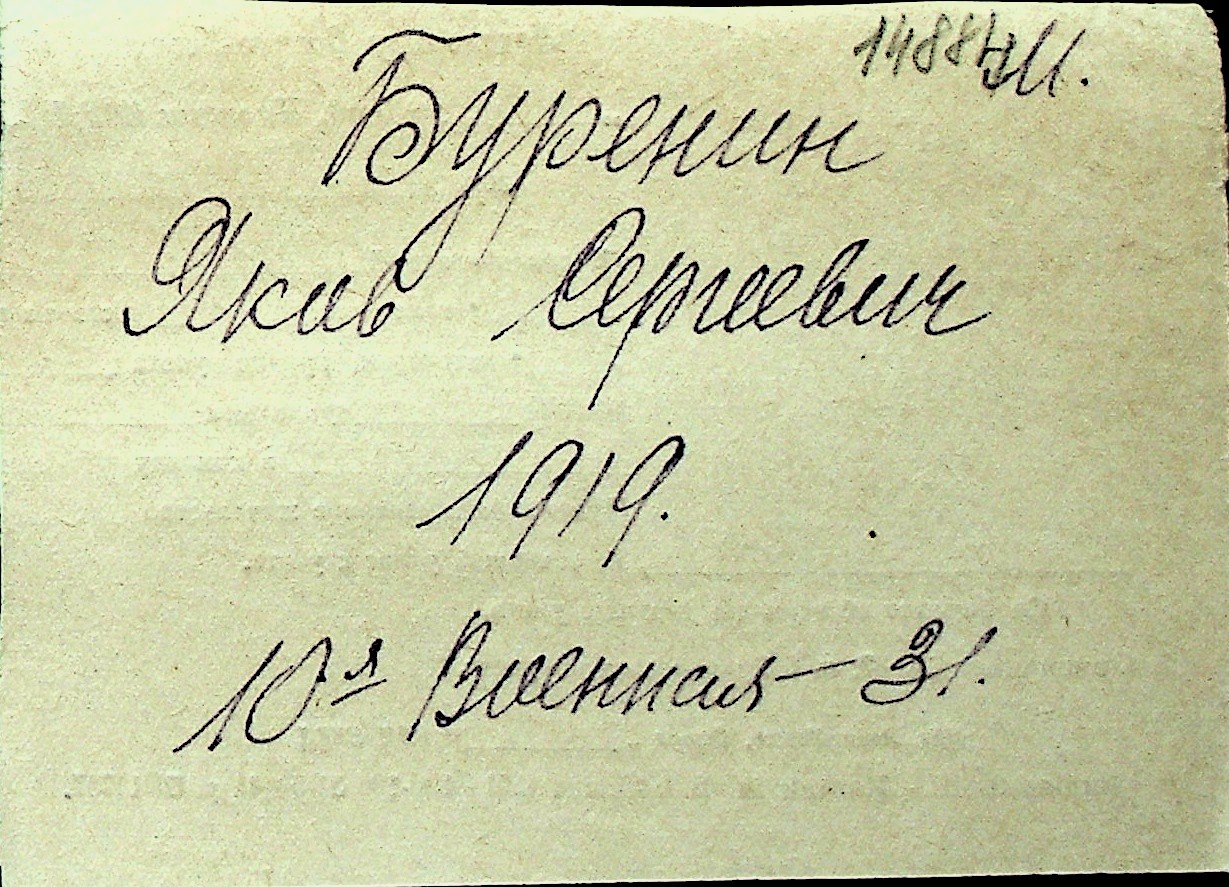 1488
Буренин
Яков Сергеевич
1919.
10я Военная – 31.